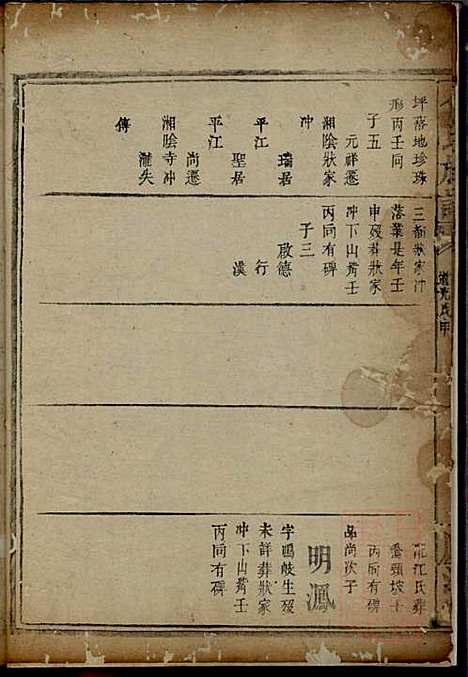 坪落地珍珠
形丙壬同
子五
元祥遷
湘陰狀家
冲
瑞居
平江
聖居
平江
尚遷
湘陰寺冲
傳
失
三衝狀家冲
落業是年壬
申歿葬狀家
冲下山觜壬
丙同有碑
子三
啟德
行
溪
江氏葬
頭坡壬
丙同有碑
尚次子
明鳳
字鳴岐生歿
未詳葬狀家
冲下山觜壬
丙同有碑
道光戊申